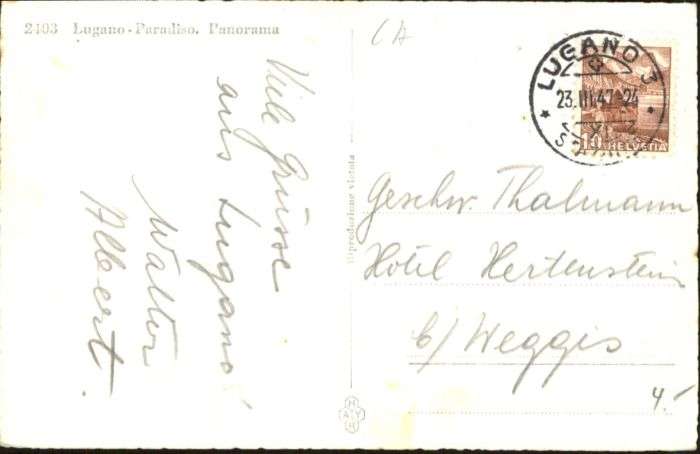 2403 Lugano-Paradiso. Panorama
CA
Viele Grüsse
aus Lugano
Walter
Albert.
Riproduzione vietata
LUGANO 3
23.III.47-24
10 HELVETIA
Geschw. Thalmann
Hotel Hertenstein
b/ Weggis
4.-